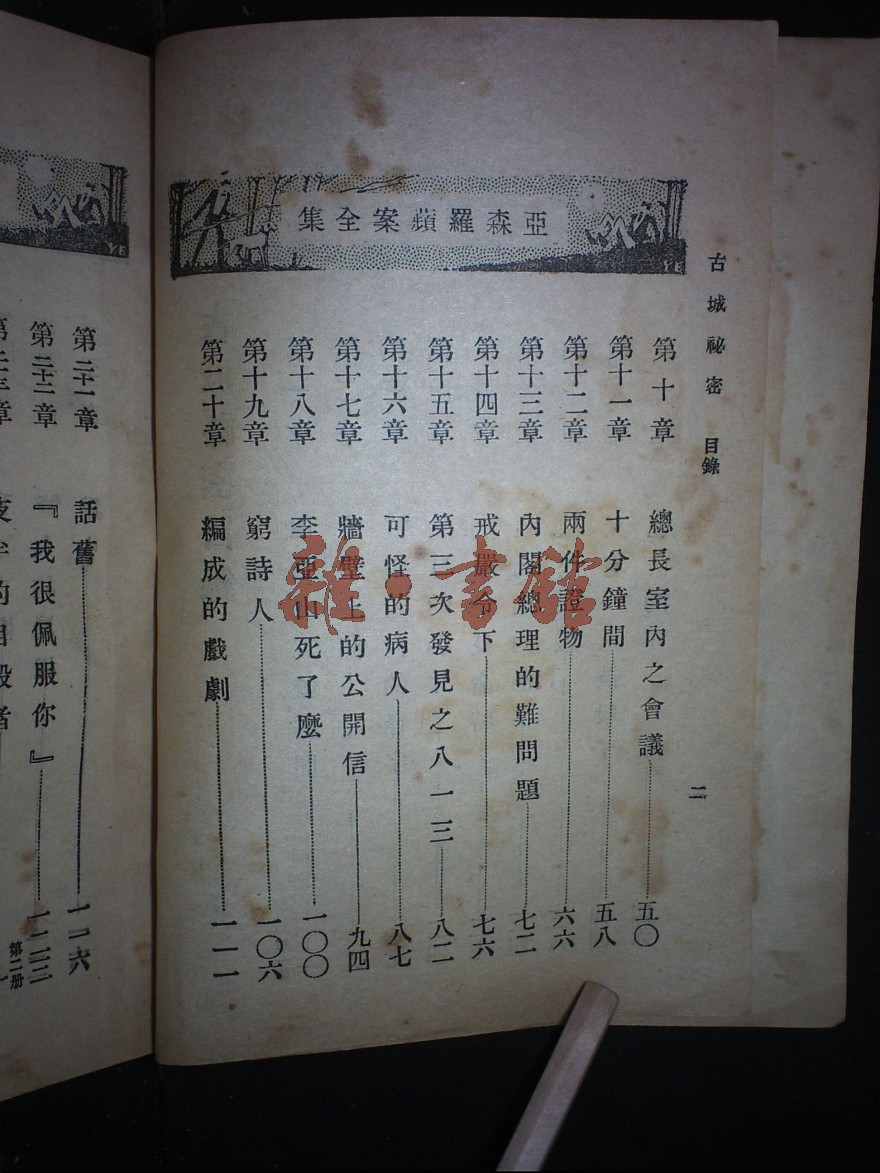 古城祕密 目錄
二
亞森羅蘋案全集
第十章 總長室內之會議 五〇
第十一章 十分鐘間 五八
第十二章 兩件證物 六六
第十三章 內閣總理的難問題 七二
第十四章 戒嚴令下 七六
第十五章 第三次發見之八一三 八二
第十六章 可怪的病人 八七
第十七章 牆壁上的公開信 九四
第十八章 李亞山死了麼 一〇〇
第十九章 窮詩人 一〇六
第二十章 編成的戲劇 一一一
第二十一章 話舊 一一六
第二十二章 『我很佩服你』
第二册
雜·書館